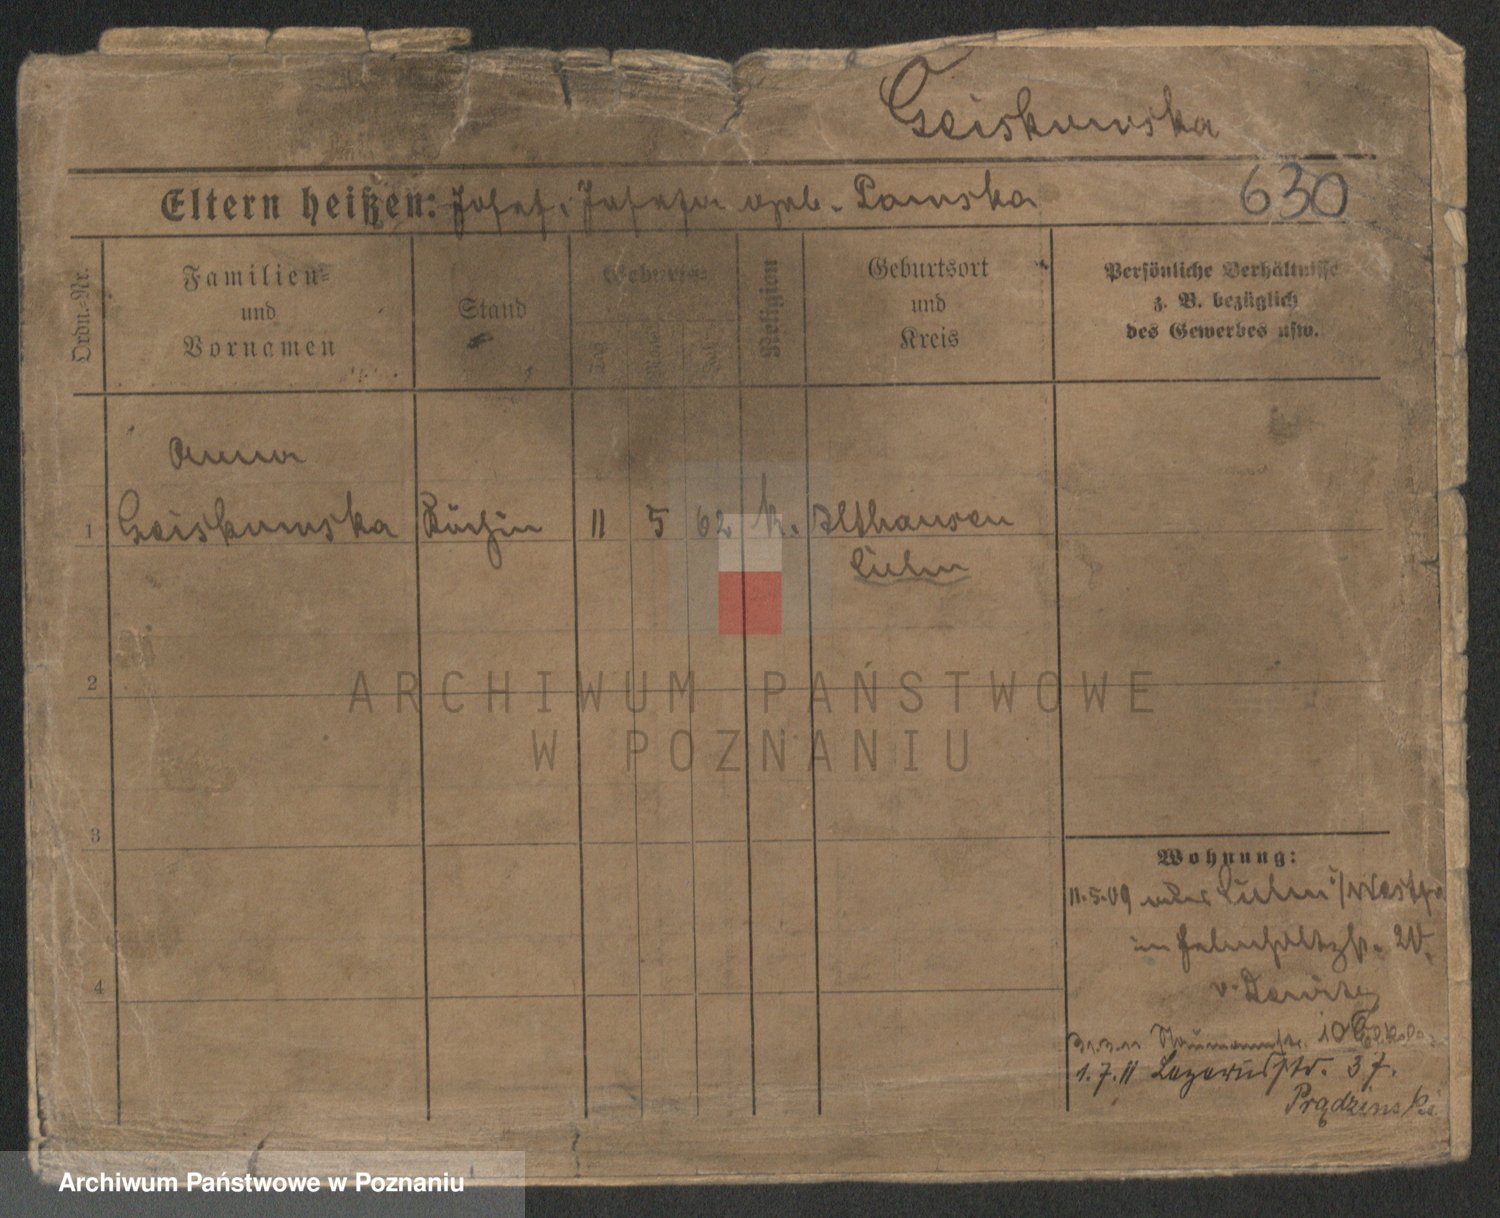 Geiskowska
Eltern heißen: Josef, Josefa geb. Pamska
630
Ordn.-Nr.
Familien-
und
Vornamen
Stand
Geburts-
Tag
Monat
Jahr
Religion
Geburtsort
und
Kreis
Persönliche Verhältnisse
z. B. bezüglich
des Gewerbes usw.
Anna
1 Geiskowska Köchin 11 5 62 k. Althausen
Culm
2
3
4
Wohnung:
11.5.09 Culm i/Westpr
im 20.
v.
Naumannstr. 10
1.7.11 Lazarusstr. 37.
Prądzinski
ARCHIWUM PAŃSTWOWE
W POZNANIU
Archiwum Państwowe w Poznaniu